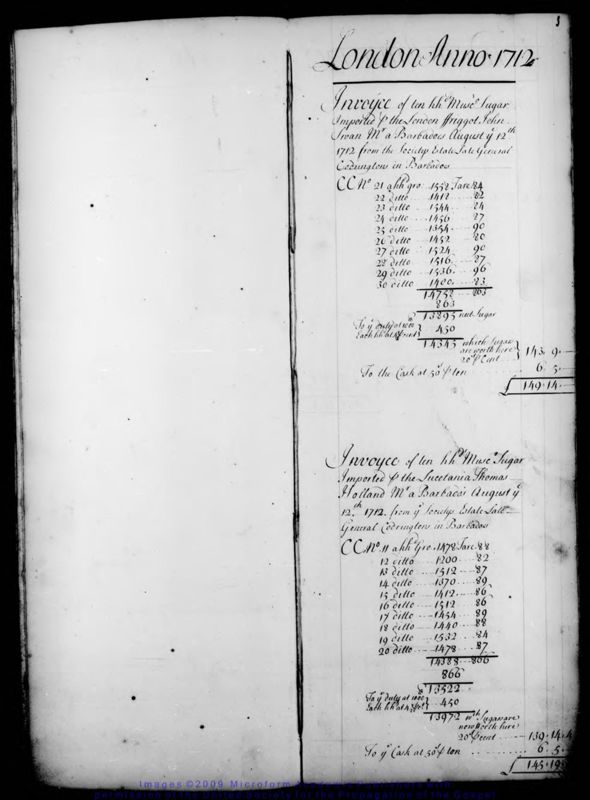 1
London Anno 1712
Invoyce of ten hhds Musco Sugar
Imported ⅌ the London ffriggot John
Swan Mr a Barbados August ye 12th
1712 from the Societys Estate Late General
Codringtons in Barbados
CC No 21 a hhd gro 1552 Tare 84
22 ditto 1412 82
23 ditto 1544 84
24 ditto 1456 87
25 ditto 1354 90
26 ditto 1452 80
27 ditto 1524 90
28 ditto 1516 87
29 ditto 1536 96
30 ditto 1400 83
14758 863
863
13895 nut Sugar
To ye duty at
Each hhd at 450
14345 which Sugar
are worth here
20s ⅌ Cent 143. 9.
To the Cask at 50s ⅌ ton 6. 5.
£149. 14.
Invoyce of ten hhds Musco Sugar
Imported ⅌ the Lucetania Thomas
Holland Mr a Barbados August ye
12th 1712 from ye Societys Estate Late
General Codringtons in Barbados
CC No 11 a hhd Gro 1878 Tare 88
12 ditto 1200 82
13 ditto 1512 87
14 ditto 1370 89
15 ditto 1412 86
16 ditto 1512 86
17 ditto 1454 89
18 ditto 1440 88
19 ditto 1532 84
20 ditto 1478 87
14388 866
866
13522
To ye duty at
Each hhd at 450
13972 wch Sugars are
now worth here
20s ⅌ cent 139. 14. 4
To ye Cask at 50s ⅌ ton 6. 5.
£145. 19
Images ©2009 Microform
permission of the United Society for the Propagation of the Gospel